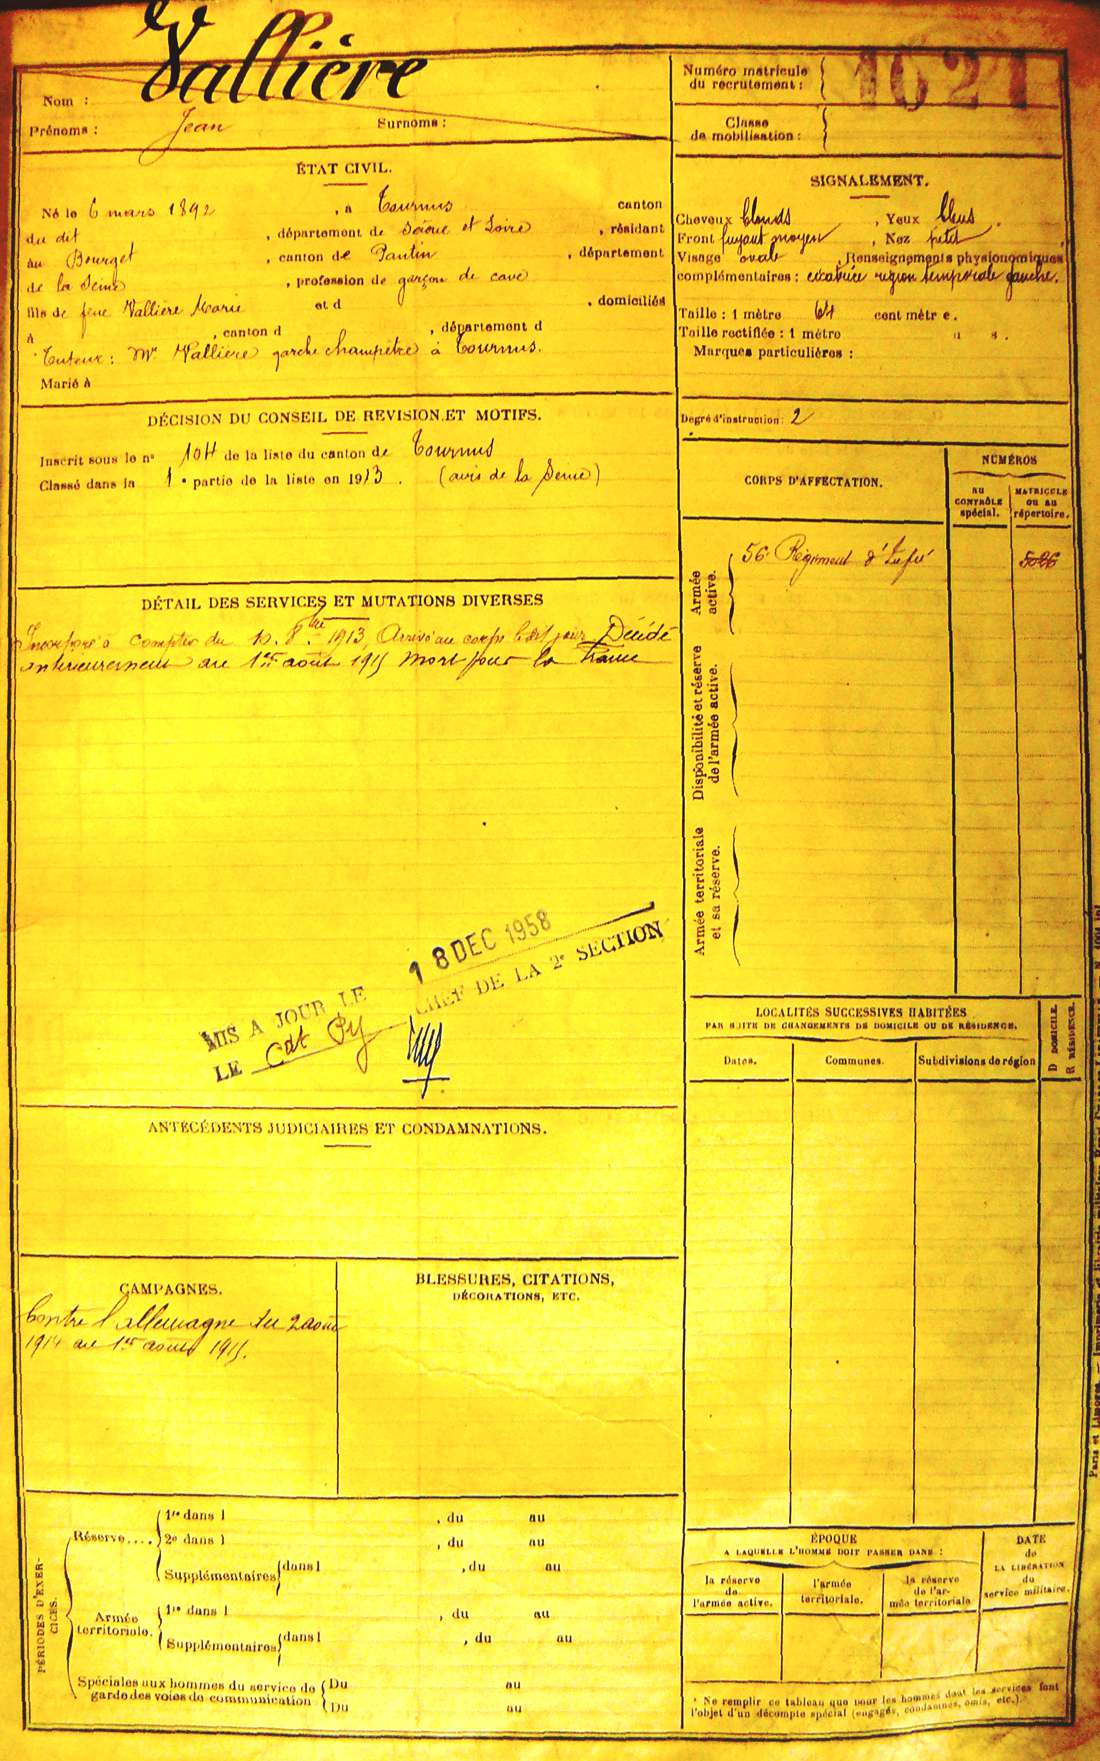 Vallière
Nom :
Prénoms : Jean Surnoms :
Numéro matricule
du recrutement : 1021
Classe
de mobilisation :
ÉTAT CIVIL.
Né le 6 mars 1892 , à Tournus canton
du dit , département de Saône et Loire , résidant
au Bourget , canton de Pantin , département
de la Seine , profession de garçon de cave
fils de feue Vallière Marie et d , domiciliés
à , canton d , département d
Tuteur : Mr Vallière garde champêtre à Tournus.
Marié à
SIGNALEMENT.
Cheveux blonds , Yeux bleus .
Front fuyant moyen , Nez petit ,
Visage ovale , Renseignements physionomiques
complémentaires : cicatrice région temporale gauche.
Taille : 1 mètre 64 centimètre.
Taille rectifiée : 1 mètre
Marques particulières :
Degré d'instruction : 2
DÉCISION DU CONSEIL DE REVISION ET MOTIFS.
Inscrit sous le n° 104 de la liste du canton de Tournus
Classé dans la 1e partie de la liste en 1913 . (avis de la Seine)
CORPS D'AFFECTATION.
NUMÉROS
AU
CONTRÔLE
spécial.
MATRICULE
OU AU
répertoire.
Armée
active.
56e Régiment d'Infie
5026
Disponibilité et réserve
de l'armée active.
Armée territoriale
et sa réserve.
DÉTAIL DES SERVICES ET MUTATIONS DIVERSES
Incorporé à compter du 10. 8bre 1913, Arrivé au corps le dit jour. Décédé
antérieurement au 1er août 1915 Mort pour la France
MIS A JOUR LE 18 DEC 1958
LE Cdt Py CHEF DE LA 2e SECTION
LOCALITÉS SUCCESSIVES HABITÉES
PAR SUITE DE CHANGEMENTS DE DOMICILE OU DE RÉSIDENCE.
Dates.
Communes.
Subdivisions de région
D DOMICILE.
R RÉSIDENCE.
ANTÉCÉDENTS JUDICIAIRES ET CONDAMNATIONS.
CAMPAGNES.
Contre l'allemagne du 2 août
1914 au 1er août 1915.
BLESSURES, CITATIONS,
DÉCORATIONS, ETC.
PÉRIODES D'EXER-
CICES.
Réserve....
1re dans l , du au
2e dans l , du au
Supplémentaires dans l , du au
Armée
territoriale.
1re dans l , du au
Supplémentaires dans l , du au
Spéciales aux hommes du service de
garde des voies de communication
Du au
Du au
ÉPOQUE
A LAQUELLE L'HOMME DOIT PASSER DANS :
la réserve
de
l'armée active.
l'armée
territoriale.
la réserve
de l'ar-
mée territoriale
DATE
de
LA LIBÉRATION
du
service militaire.
* Ne remplir ce tableau que pour les hommes dont les services font
l'objet d'un décompte spécial (engagés, condamnés, omis, etc.).